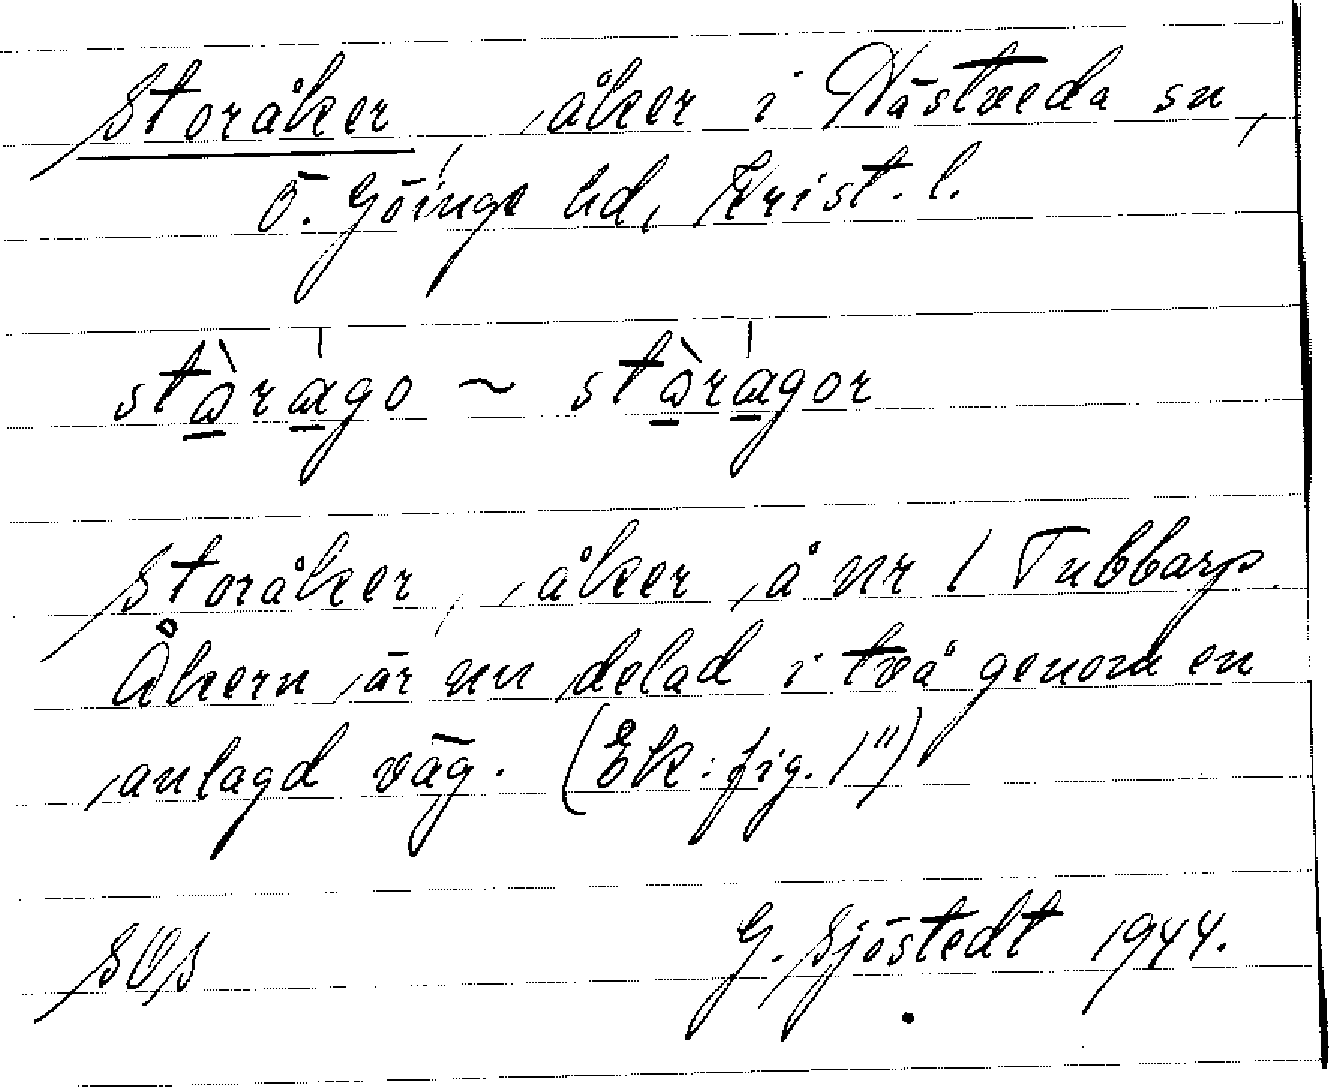 Storåker, åker i Hästveda sn,
Ö. Göinge hd, Krist. l.
stòrágo ~ stòrágor
Storåker, åker å nr 1 Tubbarp.
Åkern är nu delad i två genom en
anlagd väg. (Ek: fig. 1")
G. Sjöstedt 1944.